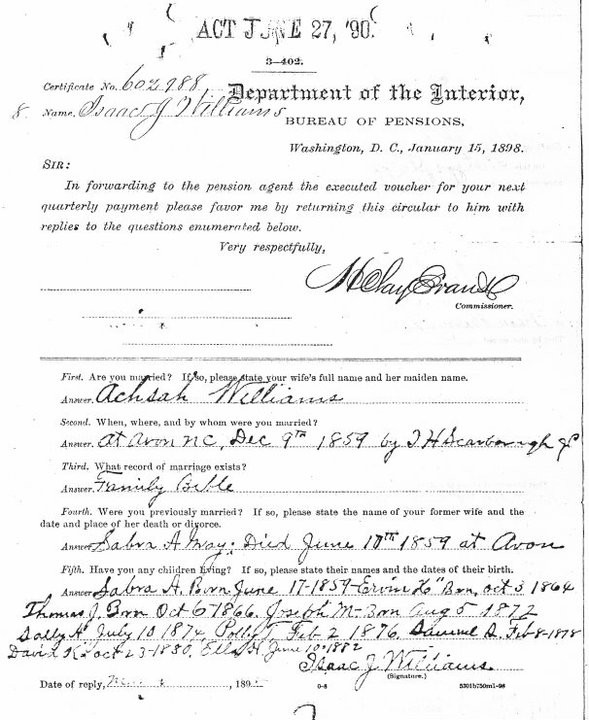 ACT JUNE 27, '90.
3-402.
Certificate No. 602,988,
Department of the Interior,
8. Name, Isaac J Williams
BUREAU OF PENSIONS,
Washington, D. C., January 15, 1898.
SIR:
In forwarding to the pension agent the executed voucher for your next
quarterly payment please favor me by returning this circular to him with
replies to the questions enumerated below.
Very respectfully,
H Clay Evans
Commissioner.
First. Are you married? If so, please state your wife's full name and her maiden name.
Answer. Achsah Williams
Second. When, where, and by whom were you married?
Answer. at Avon N.C, Dec 9th 1859 by T H Scarborough JP
Third. What record of marriage exists?
Answer. Family Bible
Fourth. Were you previously married? If so, please state the name of your former wife and the
date and place of her death or divorce.
Answer. Sabra A Way: Died June 17th 1859 at Avon
Fifth. Have you any children living? If so, please state their names and the dates of their birth.
Answer. Sabra A. Born June 17-1859-Ervin Born, oct 3 1864
Thomas J. Born Oct 6 1866. Joseph M- Born Aug 5 1872
Sally A July 10 1874, Polly T, Feb 2 1876, Samuel S. Feb-8-1878
David K. oct 23-1880, Ella June 10-1882
Isaac J. Williams
(Signature.)
Date of reply, 189
0-8
5301b750m1-98